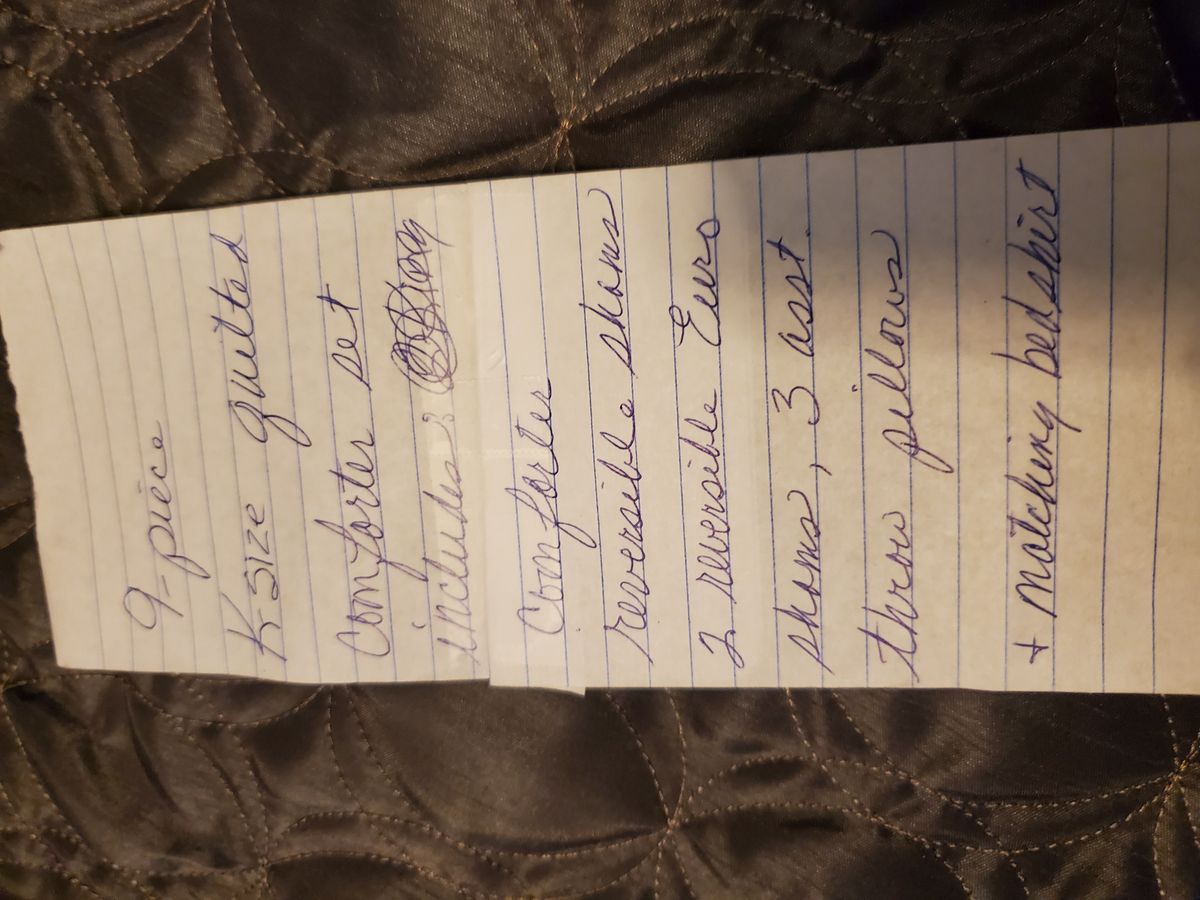 9-piece
K size quilted
comforter set
includes:
comforter
reversible shams
2 reversible Euro
shams, 3 asst.
throw pillows
+ matching bedskirt